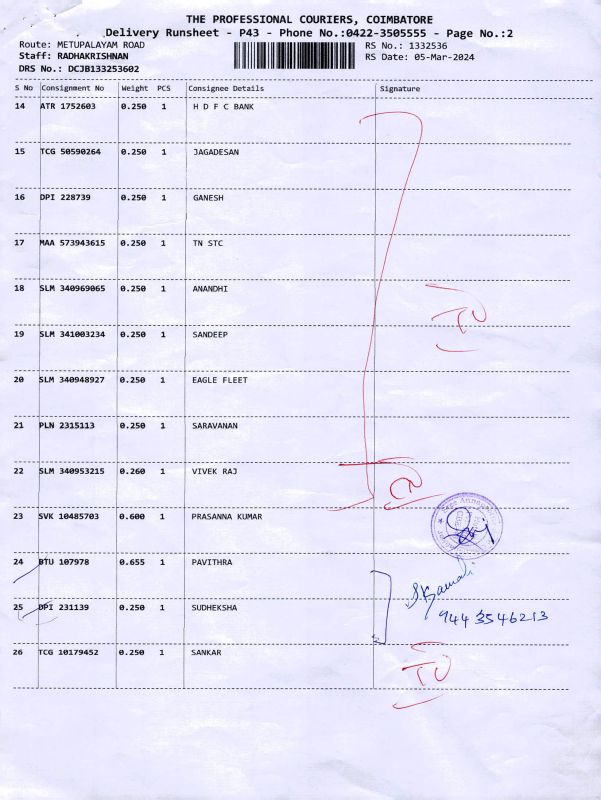 THE PROFESSIONAL COURIERS, COIMBATORE
Delivery Runsheet - P43 - Phone No.:0422-3505555 - Page No.:2
Route: METUPALAYAM ROAD
RS No.: 1332536
Staff: RADHAKRISHNAN
RS Date: 05-Mar-2024
DRS No.: DCJB133253602
S No Consignment No Weight PCS Consignee Details Signature
14 ATR 1752603 0.250 1 H D F C BANK
15 TCG 50590264 0.250 1 JAGADESAN
16 DPI 228739 0.250 1 GANESH
17 MAA 573943615 0.250 1 TN STC
18 SLM 340969065 0.250 1 ANANDHI
19 SLM 341003234 0.250 1 SANDEEP
20 SLM 340948927 0.250 1 EAGLE FLEET
21 PLN 2315113 0.250 1 SARAVANAN
22 SLM 340953215 0.260 1 VIVEK RAJ
23 SVK 10485703 0.600 1 PRASANNA KUMAR
24 BTU 107978 0.655 1 PAVITHRA
25 DPI 231139 0.250 1 SUDHEKSHA
9443546213
26 TCG 10179452 0.250 1 SANKAR